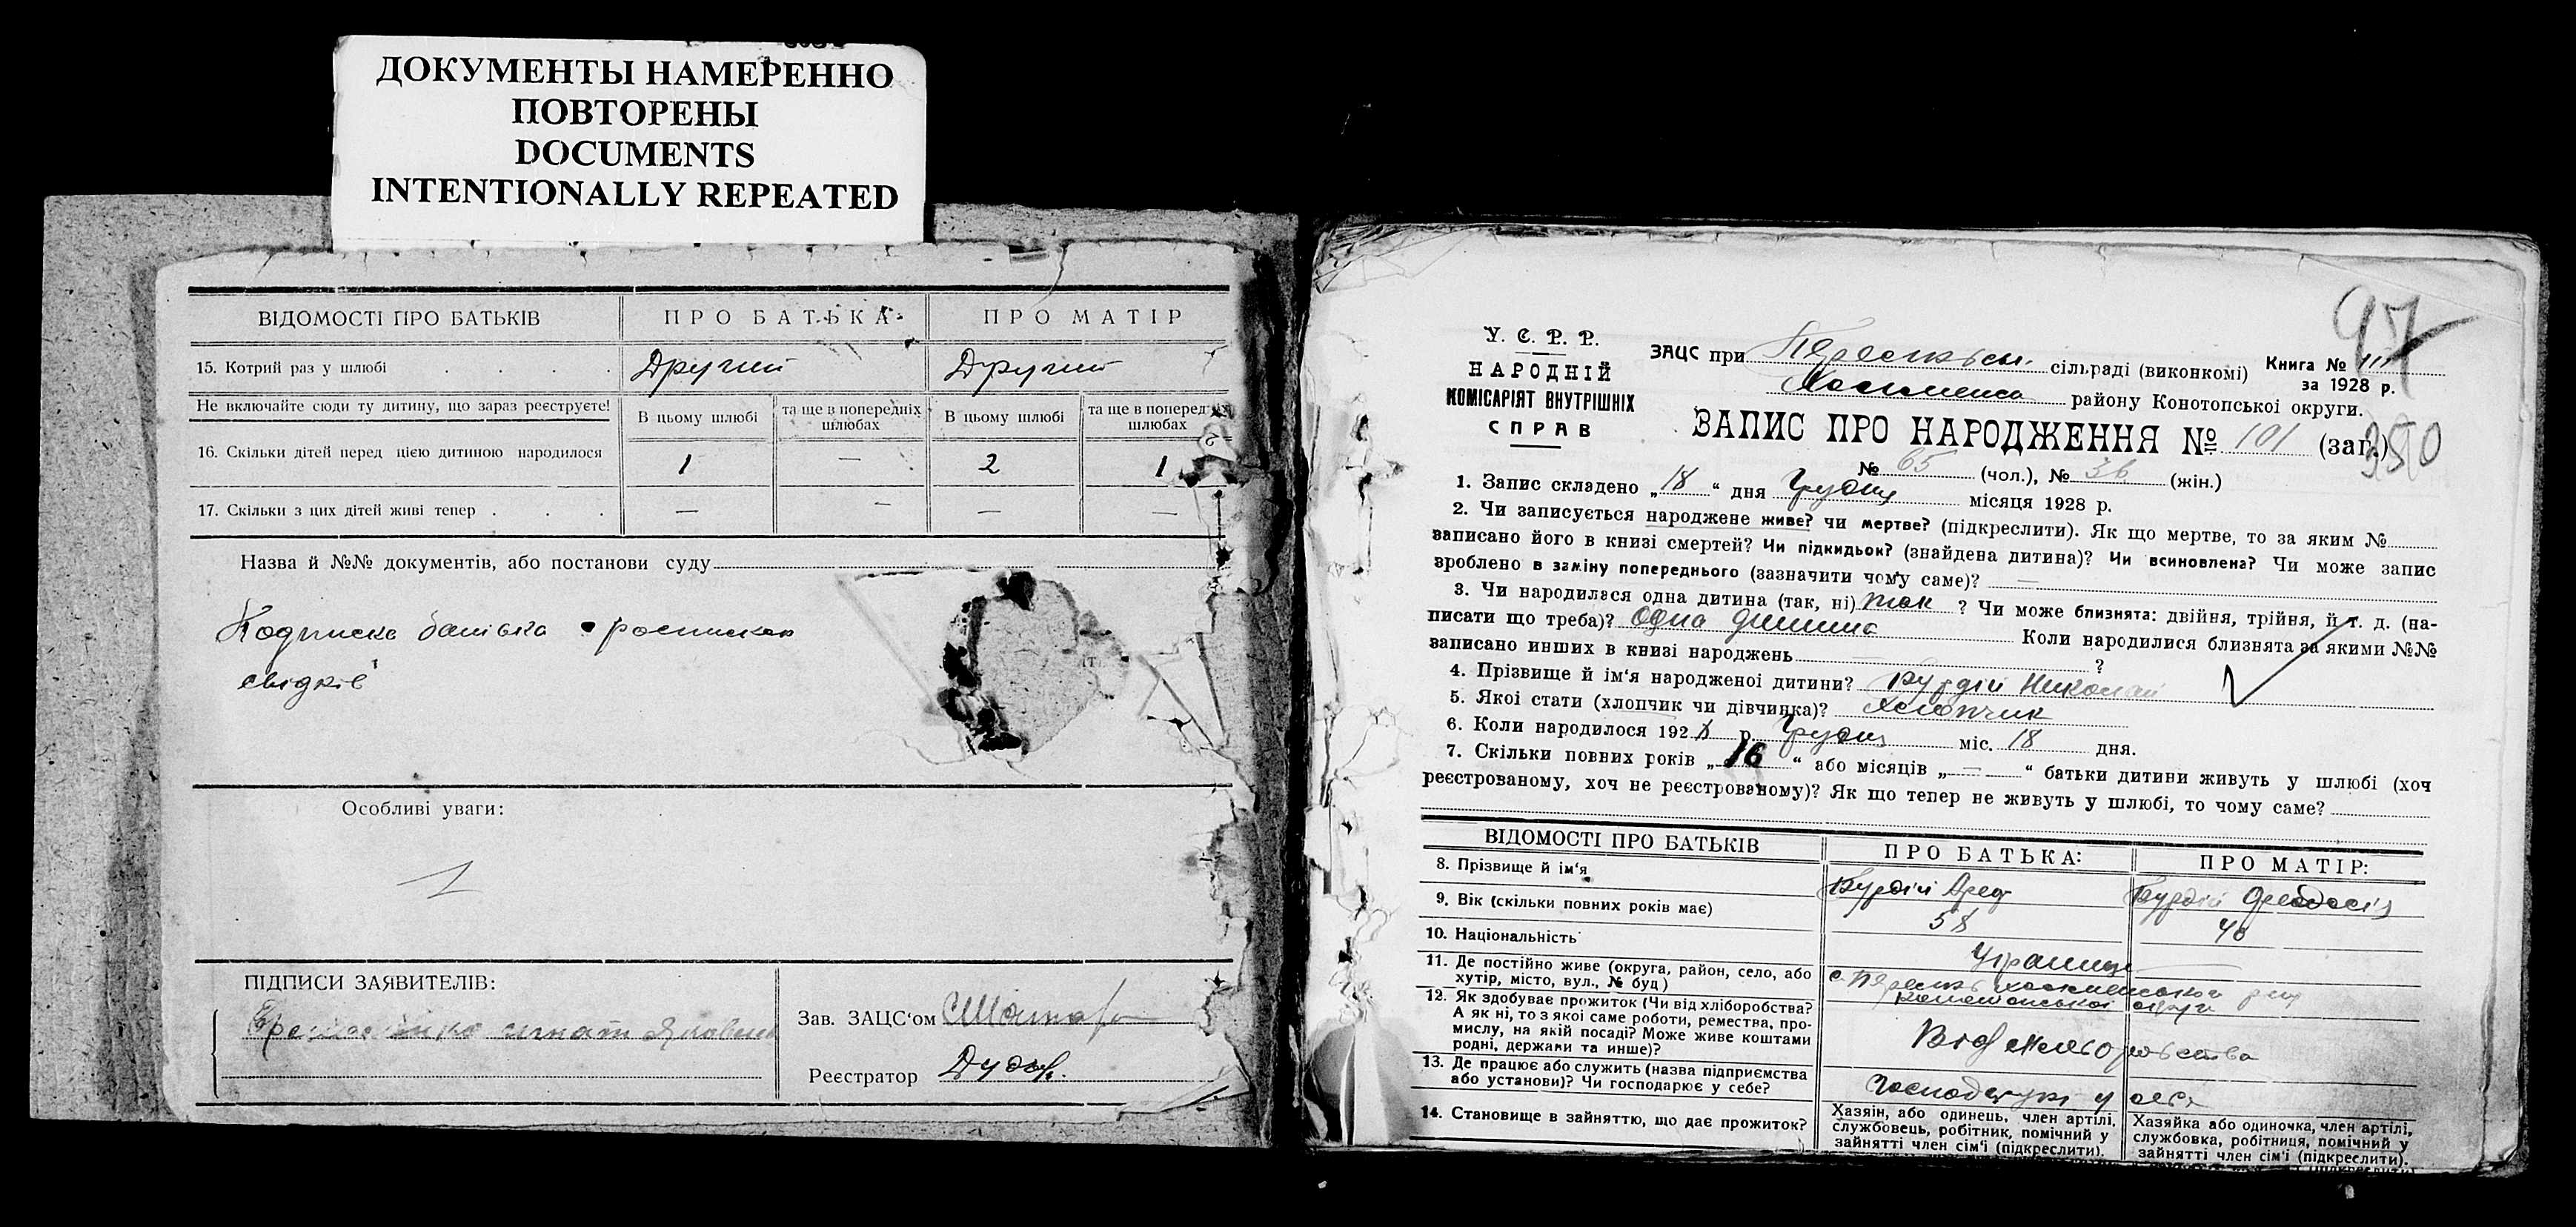 ДОКУМЕНТЫ НАМЕРЕННО
ПОВТОРЕНЫ
DOCUMENTS
INTENTIONALLY REPEATED
ВІДОМОСТІ ПРО БАТЬКІВ ПРО БАТЬКА ПРО МАТІР
15. Котрий раз у шлюбі Другий Другий
Не включайте сюди ту дитину, що зараз реєструєте! В цьому шлюбі та ще в попередніх шлюбах В цьому шлюбі та ще в попередніх шлюбах
16. Скільки дітей перед цією дитиною народилося 1 — 2 1
17. Скільки з цих дітей живі тепер — — — —
Назва й №№ документів, або постанови суду
Подписка батька росписка
свідків
Особливі уваги:
ПІДПИСИ ЗАЯВИТЕЛІВ:
игнат
Зав. ЗАЦС'ом
Реєстратор
97
У. С. Р. Р.
НАРОДНІЙ
КОМІСАРІЯТ ВНУТРІШНІХ
СПРАВ
ЗАЦС при сільраді (виконкомі) Книга № III
за 1928 р.
району Конотопської округи.
ЗАПИС ПРО НАРОДЖЕННЯ № 101 (заг.)
350
№ 65 (чол.), № 36 (жін.)
1. Запис складено „18“ дня Грудня місяця 1928 р.
2. Чи записується народжене живе? чи мертве? (підкреслити). Як що мертве, то за яким №
записано його в книзі смертей? Чи підкидьок? (знайдена дитина)? Чи всиновлена? Чи може запис
зроблено в заміну попереднього (зазначити чому саме)? —
3. Чи народилася одна дитина (так, ні) так ? Чи може близнята: двійня, трійня, й т. д. (на-
писати що треба)? Одна дитина Коли народилися близнята за якими №№
записано инших в книзі народжень ?
4. Прізвище й ім'я народженої дитини? Бурдій Николай
5. Якої стати (хлопчик чи дівчинка)? Хлопчик
6. Коли народилося 1928 р. Грудня міс. 18 дня.
7. Скільки повних років „16“ або місяців „—“ батьки дитини живуть у шлюбі (хоч
реєстрованому, хоч не реєстрованому)? Як що тепер не живуть у шлюбі, то чому саме?
ВІДОМОСТІ ПРО БАТЬКІВ ПРО БАТЬКА: ПРО МАТІР:
8. Прізвище й ім'я Бурдій Бурдій Феодосія
9. Вік (скільки повних років має) 58 40
10. Національність Українці
11. Де постійно живе (округа, район, село, або
хутір, місто, вул., № буд)
12. Як здобуває прожиток (Чи від хліборобства?
А як ні, то з якої саме роботи, ремества, про-
мислу, на якій посаді? Може живе коштами
родні, держави та инше)? Від хліборобства
13. Де працює або служить (назва підприємства
або установи)? Чи господарює у себе? Господарює у себе
14. Становище в зайняттю, що дає прожиток?
Хазяін, або одинець, член артілі,
службовець, робітник, помічний у
зайнятті член сім'ї (підкреслити).
Хазяйка або одиночка, член артілі,
службовка, робітниця, помічний у
зайнятті член сім'ї (підкреслити).